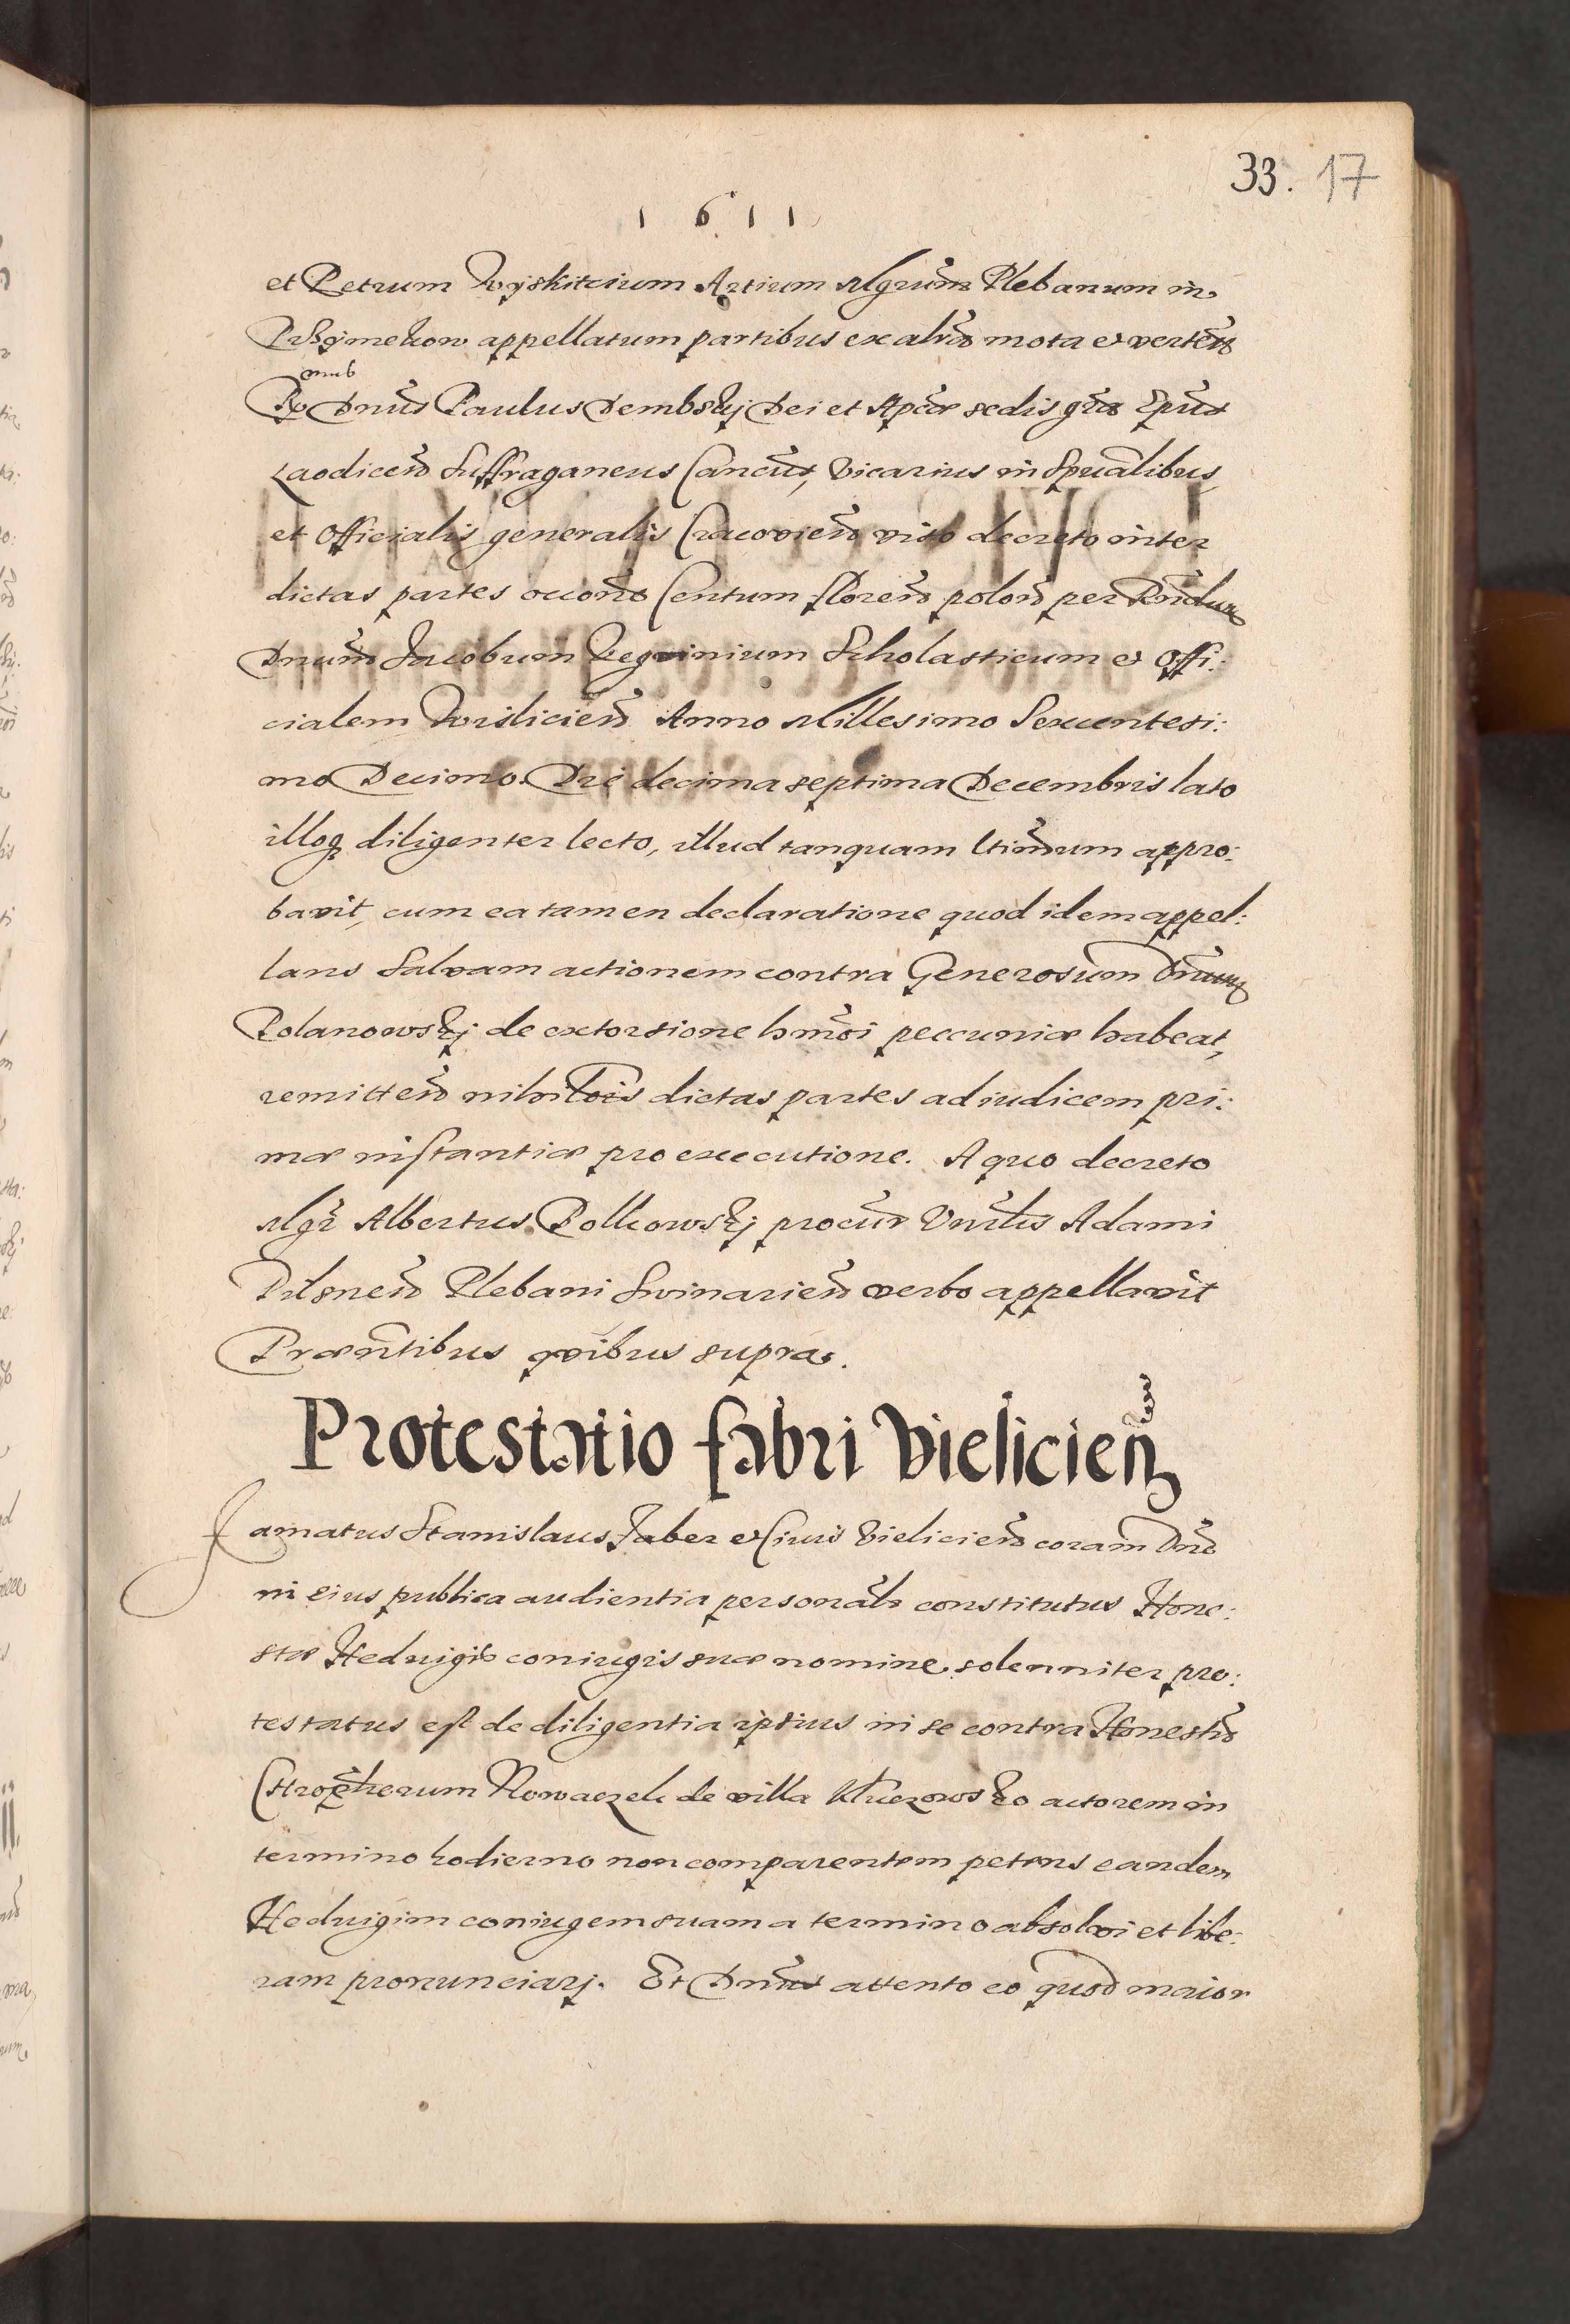 33. 17
1611
et Petrum Wyskitcium Artium Mgrum Plebanum in
appellatum partibus ex altra mota et verten
Rmus Dnus Paulus Dembskj Dei et Apcæ sedis gra Epus
Laodicen Suffraganeus Cancus, Vicarius in Spualibus,
et Officialis generalis Cracovien viso decreto inter
dictas partes occone Centum floren polon per Rndum
Dnum Jacobum Scholasticum et Offi:
cialem Wislicien Anno Millesimo Sexcentesi:
mo Decimo. Die decima septima Decembris lato
illoq diligenter lecto, illud tanquam ltimum appro:
bavit, cum ea tamen declaratione quod idem appel:
lans salvam actionem contra Generosum Dnum
Polanowskj de extorsione hmoi peccuniæ habeat,
remitten nihilois dictas partes ad iudicem pri:
mæ instantiæ pro executione. A quo decreto
Mgr Albertus Polkowskj procur Vnrlis Adami
Pilsnen Plebani Swinarien verbo appellavit
Præntibus quibus supra.
Protestatio fabri Vielicien
Famatus Stanislaus Faber et Civis Vielicien coram Dno
in eius publica audientia personalr constitutus Hone:
stæ Hedvigis coniugis suæ nomine solenniter pro:
testatus est de diligentia ipsius in se contra Honestum
Nowaczek de villa actorem in
termino hodierno non comparentem petens eandem
Hedvigim coniugem suam a termino absolvi et libe:
ram pronunciarj. Et Dnus attento eo quod maior